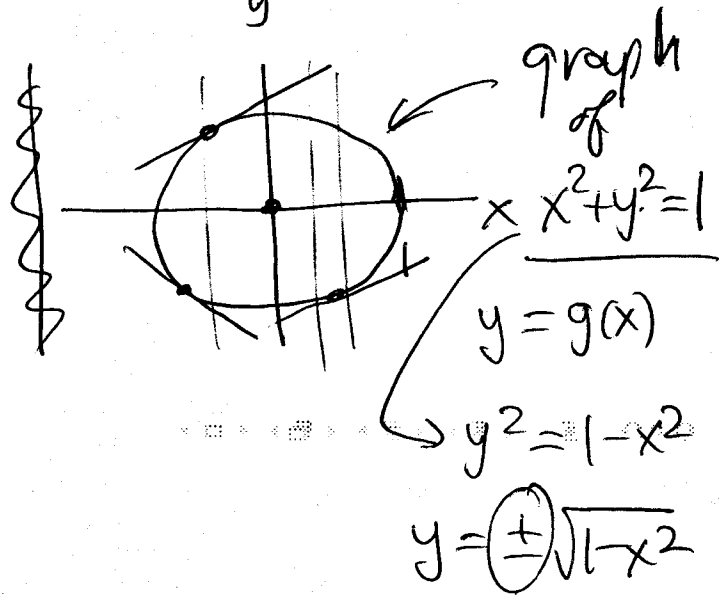 y
graph
of
x
x²+y²=1
1
y=g(x)
y²=1-x²
y=±√1-x²